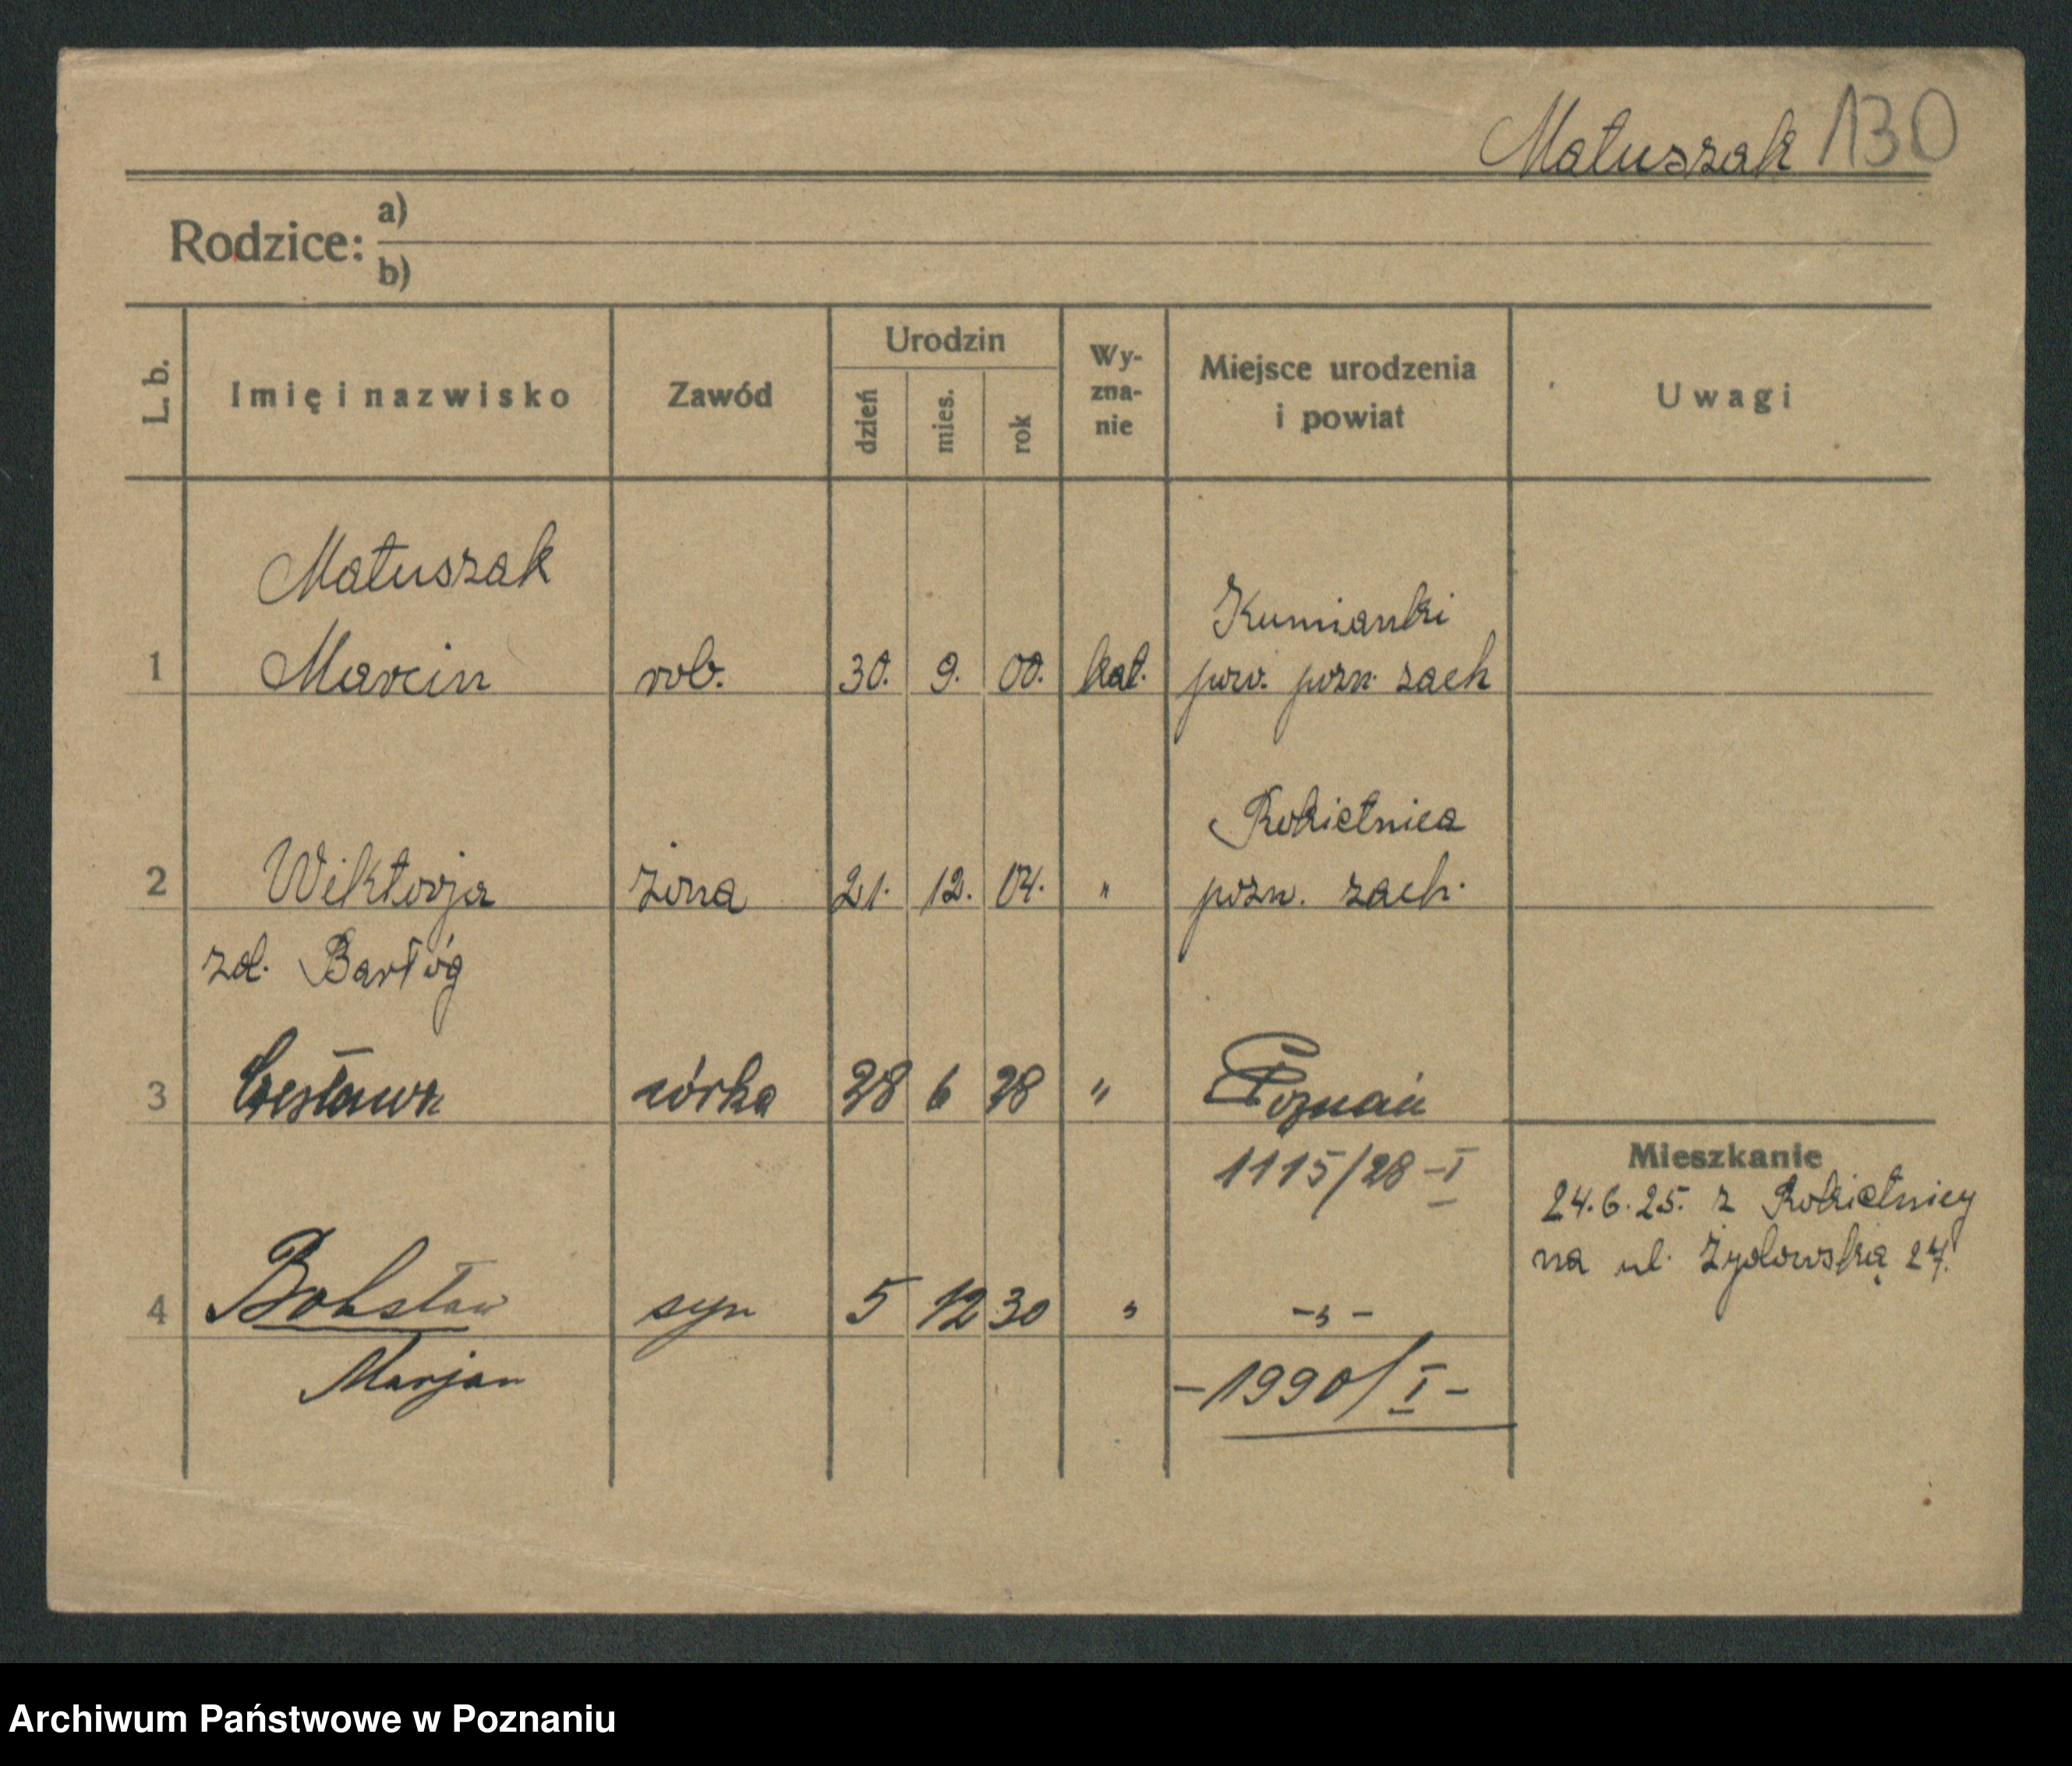 Matuszak 130
Rodzice: a)
b)
L. b. Imię i nazwisko Zawód Urodzin dzień mies. rok Wy-zna-nie Miejsce urodzenia i powiat Uwagi
Matuszak
Kumianki
1 Marcin rob. 30. 9. 00. kat. pow. pozn. zach
Rokietnica
2 Wiktorja żona 21. 12. 04. " pozn. zach.
zd. Bartóg
3 Czesława córka 28 6 28 " Poznań
1115/28 - I
Mieszkanie
24.6.25. z Rokietnicy
na ul. Żydowską 27.
4 Bolesław syn 5 12 30 " -"-
Marjan
-1990/I-
Archiwum Państwowe w Poznaniu